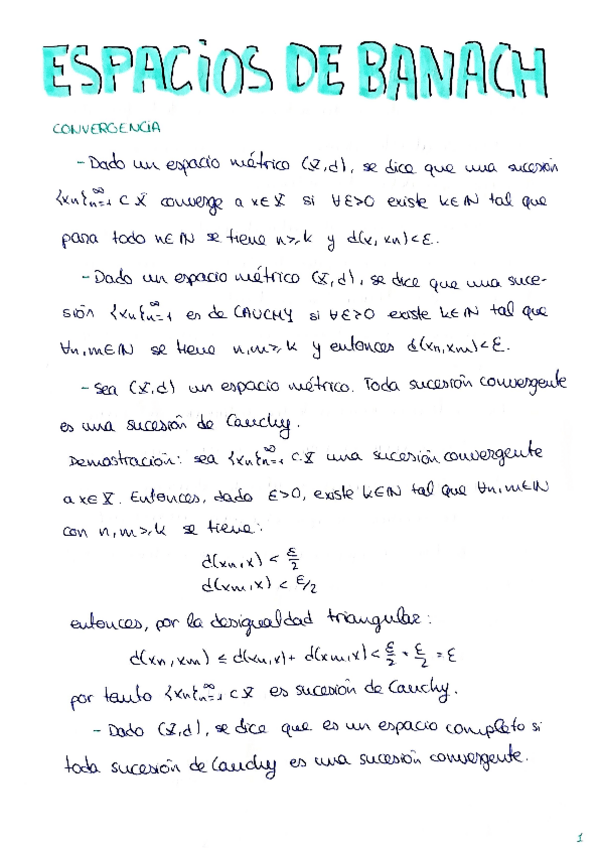 ESPACIOS DE BANACH
CONVERGENCIA
- Dado un espacio métrico (X,d), se dice que una sucesión
{xn}ₙ₌₁^∞ ⊂ X converge a x∈X si ∀ε>0 existe k∈ℕ tal que
para todo n∈ℕ se tiene n≥k y d(x, xn)<ε.
- Dado un espacio métrico (X,d), se dice que una suce-
sión {xn}ₙ₌₁^∞ es de CAUCHY si ∀ε>0 existe k∈ℕ tal que
∀n,m∈ℕ se tiene n,m≥k y entonces d(xn,xm)<ε.
- Sea (X,d) un espacio métrico. Toda sucesión convergente
es una sucesión de Cauchy.
Demostración: sea {xn}ₙ₌₁^∞ ⊂ X una sucesión convergente
a x∈X. Entonces, dado ε>0, existe k∈ℕ tal que ∀n,m∈ℕ
con n,m≥k se tiene:
d(xn,x) < ε/2
d(xm,x) < ε/2
entonces, por la desigualdad triangular:
d(xn,xm) ≤ d(xn,x)+ d(xm,x)< ε/2 + ε/2 = ε
por tanto {xn}ₙ₌₁^∞ ⊂ X es sucesión de Cauchy.
- Dado (X,d), se dice que es un espacio completo si
toda sucesión de Cauchy es una sucesión convergente.
1